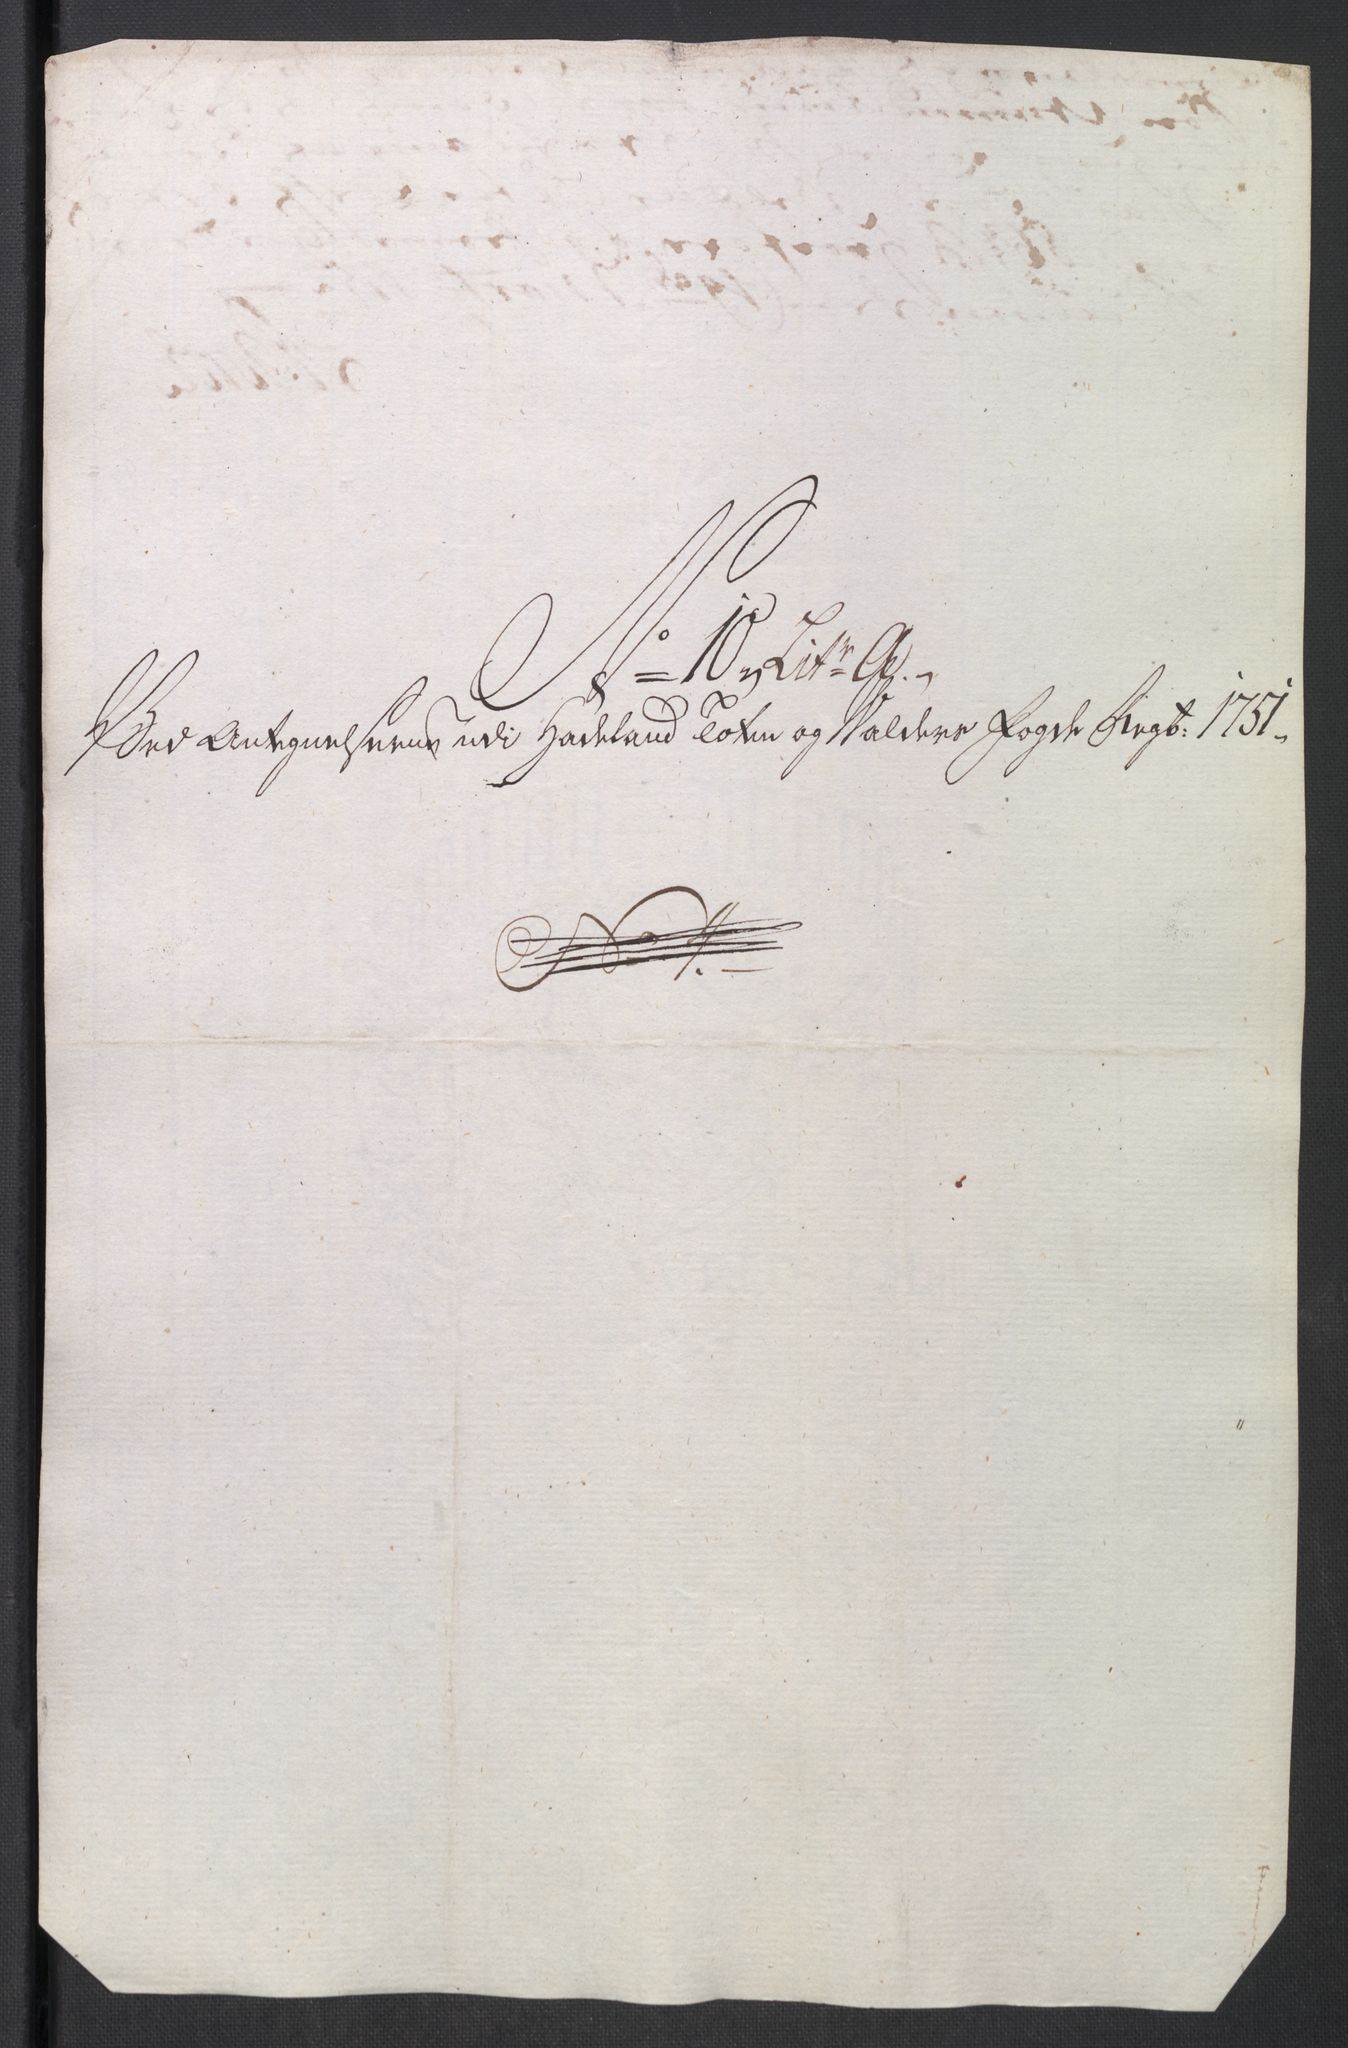 No 10, Litr A.
Ved Antegnelserne udi Hadeland Toten og Valders Fogde Regb: 1751
No 4.